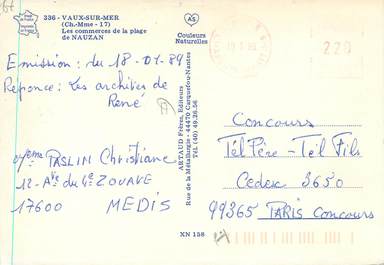 336 - VAUX-SUR-MER
(Ch.-Mme - 17)
Les commerces de la plage
de NAUZAN
AS
Couleurs
Naturelles
220
Emission : du 18-01-89
Réponse : Les archives de
René
PASLIN Christiane
12 - Ave du 4e ZOUAVE
17600 MEDIS
ARTAUD Frères, Editeurs
Rue de la Métallurgie - 44470 Carquefou-Nantes
Tél. (40) 49.28.56
Concours
Tél Père - Tél Fils
Cedex 3650
99365 PARIS Concours
XN 158